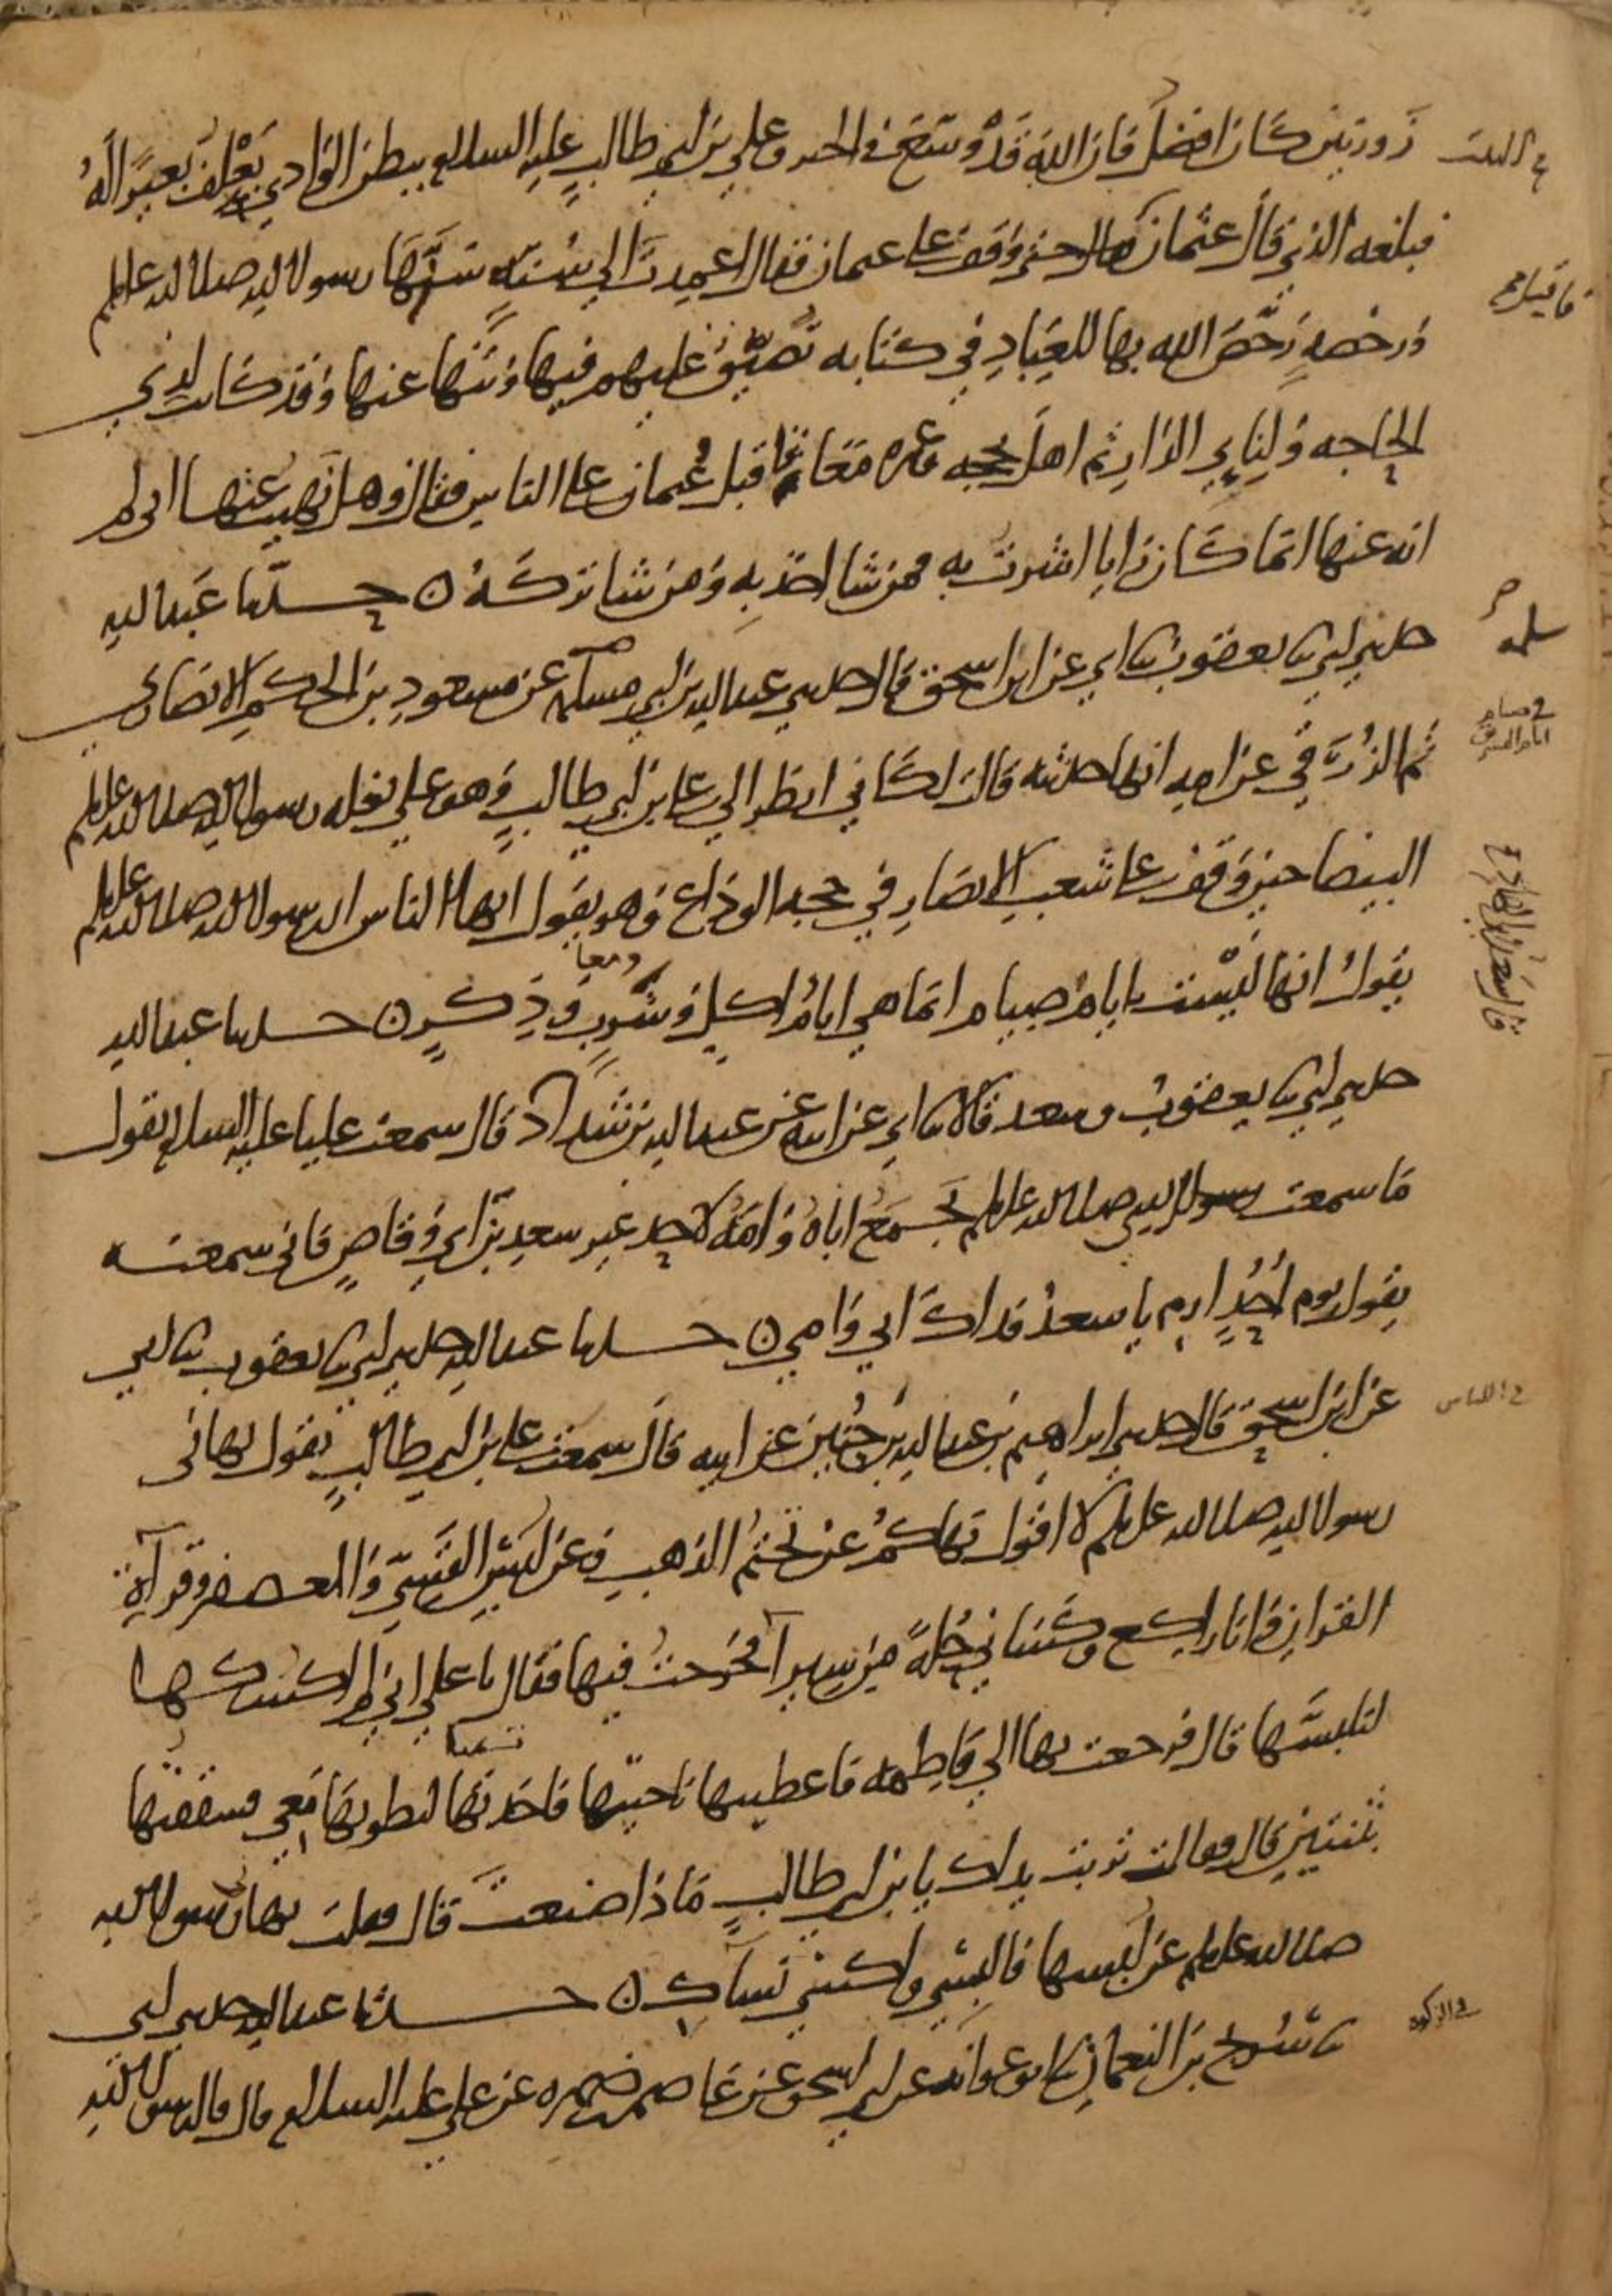 زورتين كان افضل فان الله قد وسع في الخير وعلي بن ابي طالب عليه السلام ببطن الوادي يعلف بعيرا له
فبلغه الذي قال عثمان قال حتى وقف على عثمان فقال اعمدت الي سنة سنها رسول الله صلى الله عليه وسلم
ورخصة رخص الله بها للعباد في كتابه تضيق عليهم فيها وتنها عنها وقد كانت لذي
الحاجه ولناي الدار ثم اهل بحجه وعمره معا فاقبل عثمان على الناس فقال وهل نهيت عنها اني لم
انه عنها انما كان رايا اشرت به فمن شا اخذ به ومن شا تركه ن حدثنا عبد الله
حدثني ابي ثنا يعقوب ثنا ابي عن ابن اسحق قال حدثني عبد الله بن ابي مسلمه عن مسعود بن الحكم الانصاري
ثم الزرقي عن امه انها حدثته قالت لكاني انظر الي علي بن ابي طالب وهو علي بغلة رسول الله صلى الله عليه وسلم
البيضا حين وقف على شعب الانصار في حجة الوداع وهو يقول ايها الناس ان رسول الله صلى الله عليه وسلم
يقول انها ليست بايام صيام انما هي ايام اكل وشرب وذكر ن حدثنا عبد الله
حدثني ابي ثنا يعقوب وسعد قالا ثنا ابي عن ابيه عن عبد الله بن شداد قال سمعت عليا عليه السلام يقول
ما سمعت رسول الله صلى الله عليه وسلم يجمع اباه وامه لاحد غير سعد بن ابي وقاص فاني سمعته
يقول يوم احد ارم يا سعد فداك ابي وامي ن حدثنا عبد الله حدثني ابي ثنا يعقوب ثنا ابي
عن ابن اسحق قال حدثني ابراهيم بن عبد الله بن حنين عن ابيه قال سمعت علي بن ابي طالب يقول نهاني
رسول الله صلى الله عليه وسلم لا اقول نهاكم عن تختم الذهب وعن لبس القسي والمعصفر وقرآة
القران وانا راكع وكساني حلة من سيرا فخرجت فيها فقال يا علي اني لم اكسكها
لتلبسها قال فرجعت بها الي فاطمه فاعطيتها ناحيتها فاخذتها لتطويها معي فشققتها
بثنتين قال فقالت تربت يداك يا بن ابي طالب ماذا صنعت قال فقلت نهاني رسول الله
صلى الله عليه وسلم عن لبسها فالبسي واكسي نساك ن حدثنا عبد الله حدثني ابي
ثنا سريج بن النعمان ثنا ابو عوانه عن ابي اسحق عن عاصم بن ضمره عن علي عليه السلام قال قال رسول الله
فاقبل صح
سلمه
في صيام
ايام التشريق
في اللباس
في الزكوة